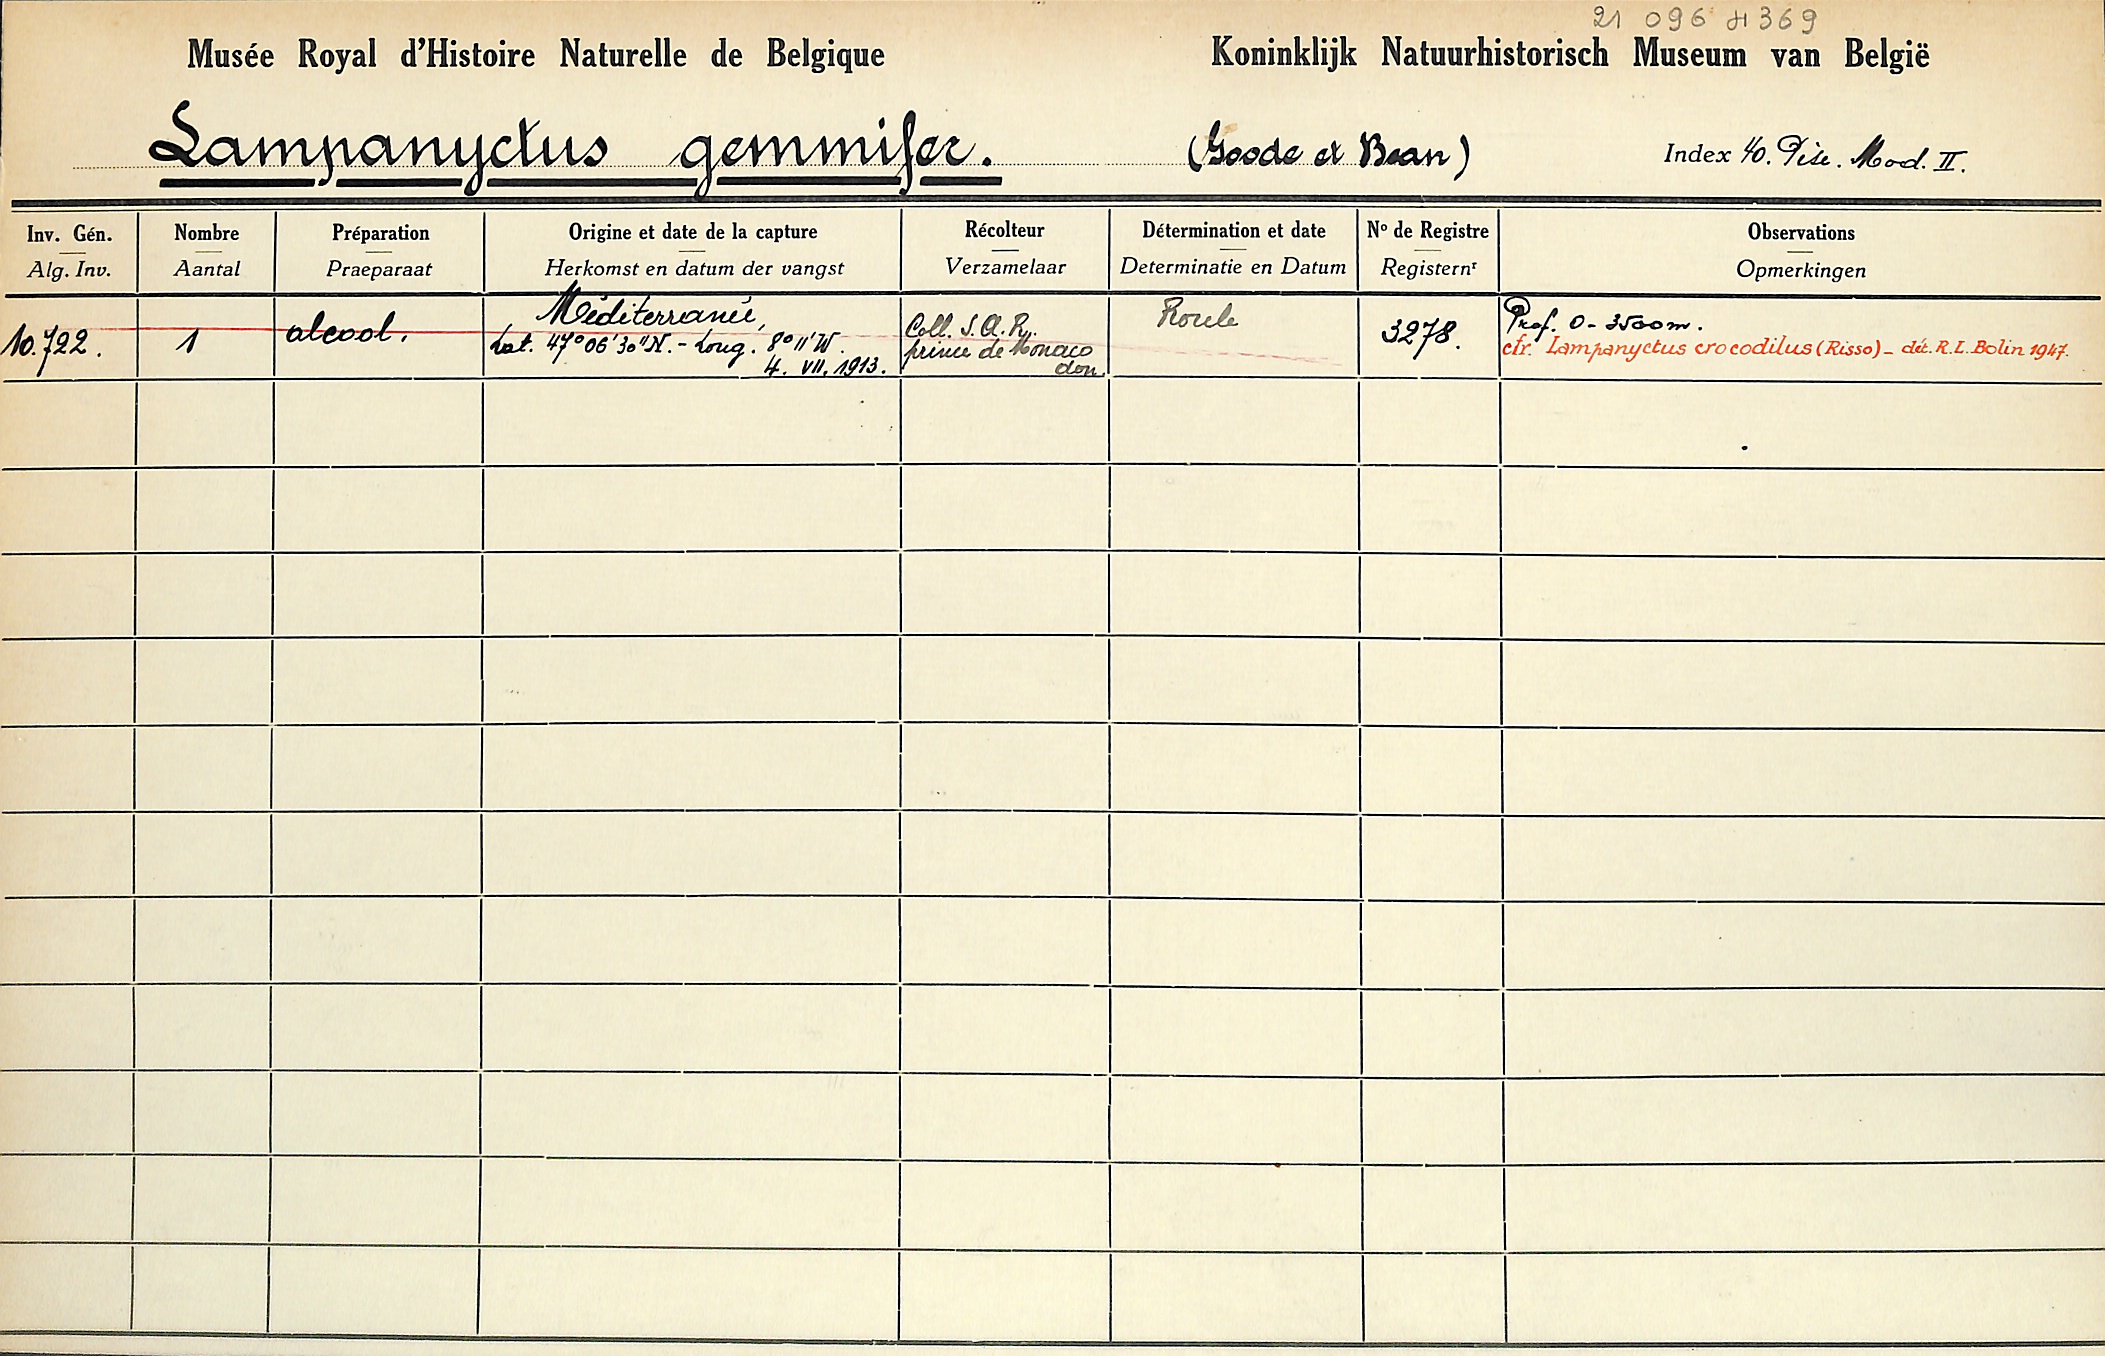 21 096 H 369
Musée Royal d'Histoire Naturelle de Belgique
Koninklijk Natuurhistorisch Museum van België
Lampanyctus gemmifer.
(Goode et Bean)
Index 40. Pisc. Mod. II.
Inv. Gén.
Alg. Inv.
Nombre
Aantal
Préparation
Praeparaat
Origine et date de la capture
Herkomst en datum der vangst
Récolteur
Verzamelaar
Détermination et date
Determinatie en Datum
Nº de Registre
Registernʳ
Observations
Opmerkingen
10.722.
1
alcool.
Méditerranée,
Lat. 47°06'30"N. - Long. 8°11'W.
4. VII. 1913.
Coll. S. A. R.
prince de Monaco
don.
Roule
3278.
Prof. 0-3500m.
cfr. Lampanyctus crocodilus (Risso) - dét. R. L. Bolin 1947.